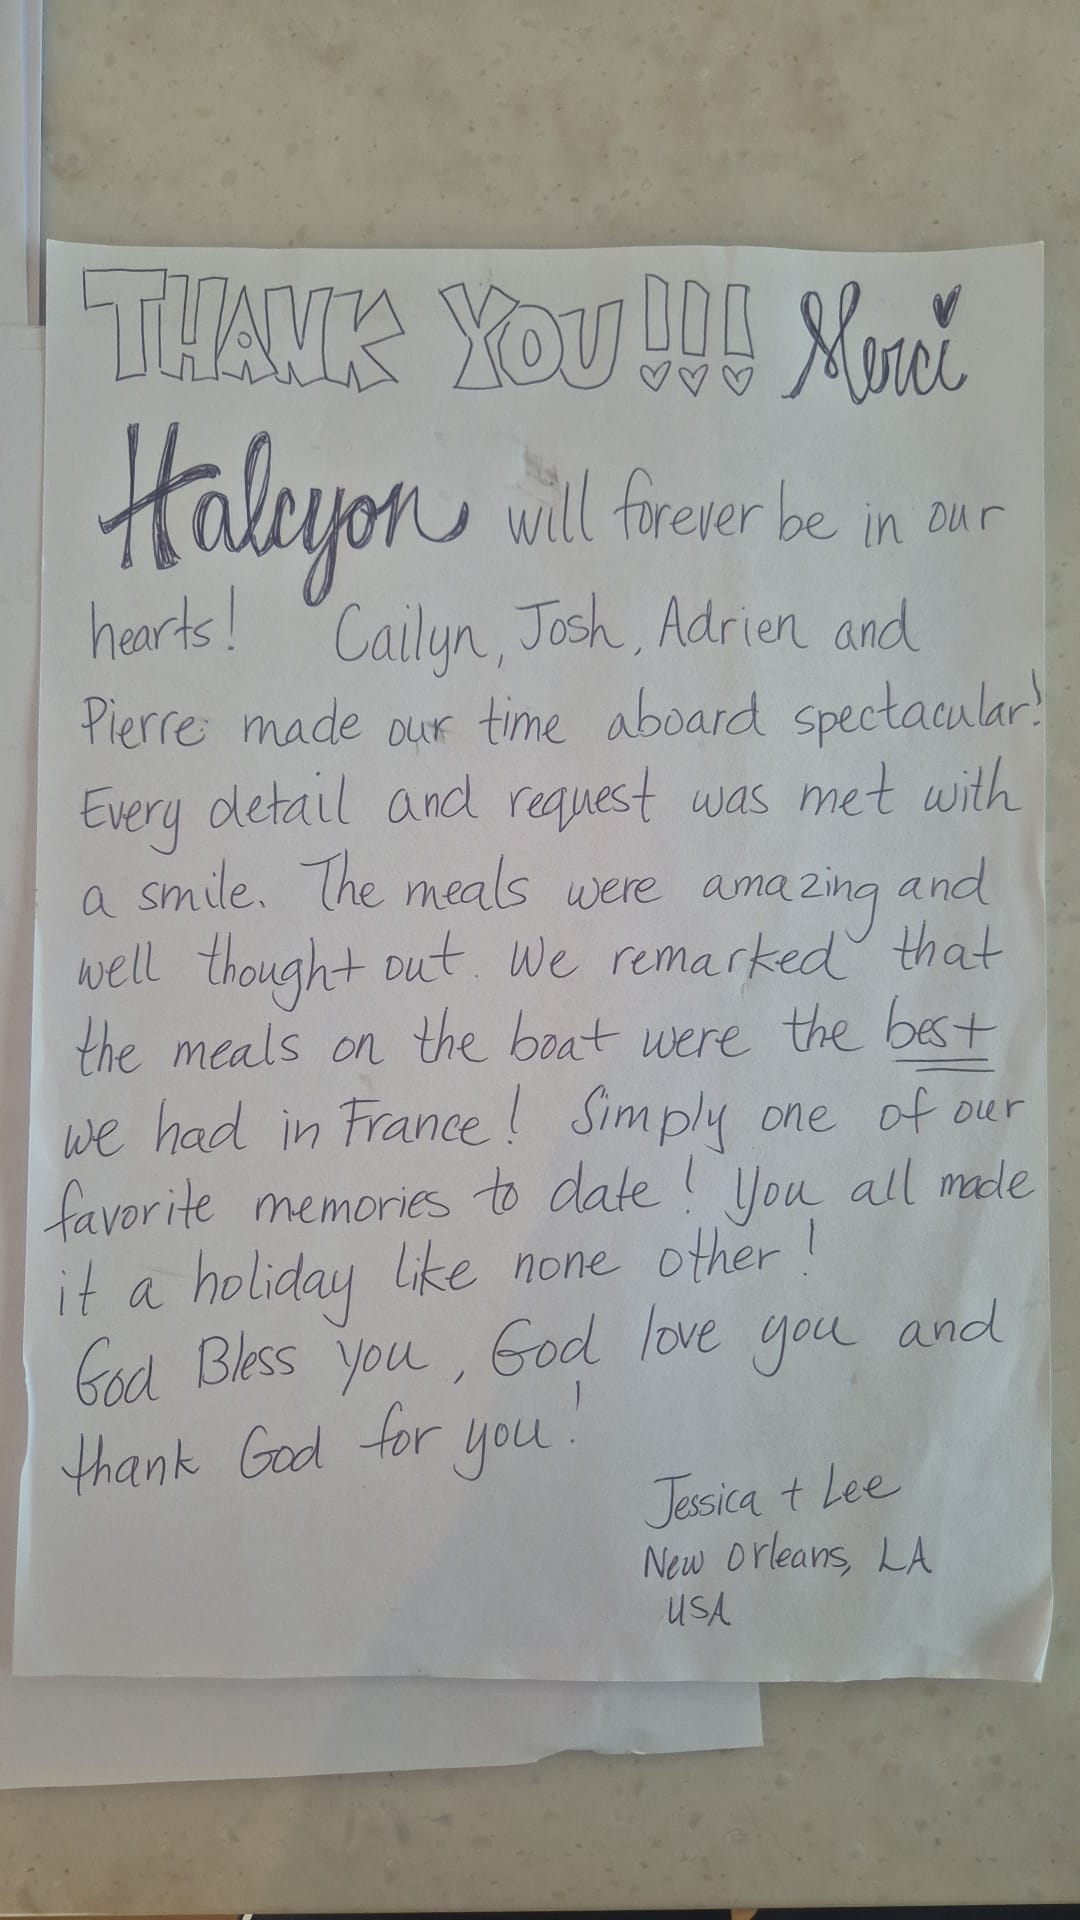 THANK YOU!!! Merci
Halcyon will forever be in our
hearts! Cailyn, Josh, Adrien and
Pierre made our time aboard spectacular!
Every detail and request was met with
a smile. The meals were amazing and
well thought out. We remarked that
the meals on the boat were the best
we had in France! Simply one of our
favorite memories to date! You all made
it a holiday like none other!
God Bless you, God love you and
thank God for you!
Jessica + Lee
New Orleans, LA
USA